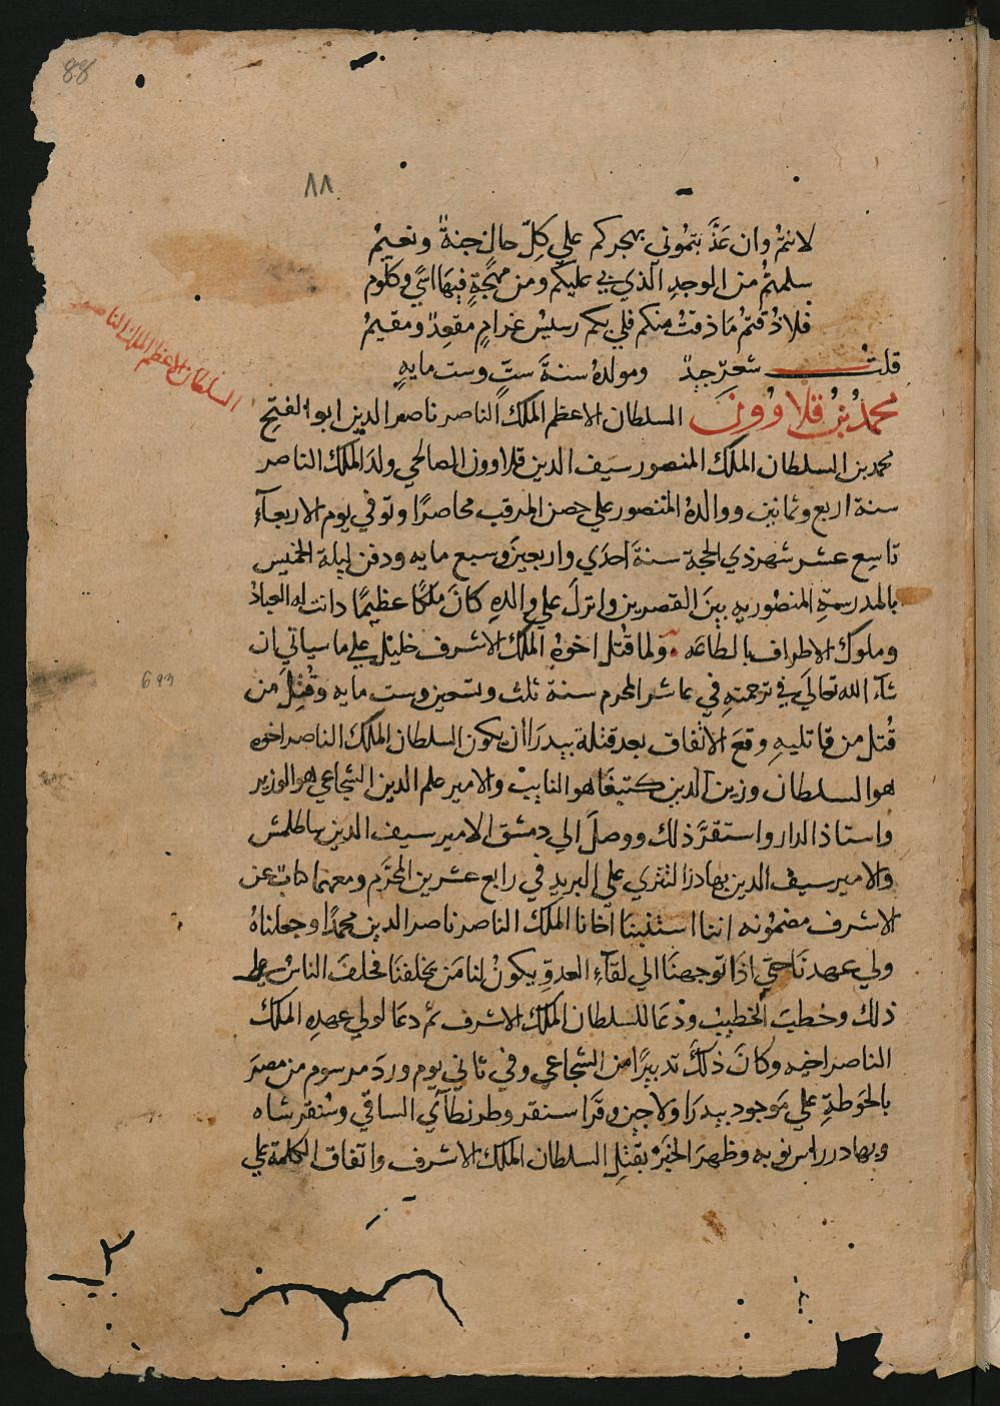 88
٨٨
لانتمُ وان عَذَّبتمُوني بهجركم علي كلِّ حالٍ جنةٌ ونعيمُ
سلمتمُ من الوجدِ الذي بي عليكم ومن مهجةٍ فيهَا اسًي وكلوم
فلا ذُقتمُ مَا ذقتُ منكم فلي بكم رسيسُ غرامٍ مقعدٌ ومقيمُ
قلتُ شعرٌ جيدٌ ومولدهُ سنةَ ستٍّ وست مايهٍ
محمدُ بنُ قلاوُونَ السلطان الاعظم الملك الناصر ناصر الدين ابو الفتح
السلطان الاعظم الملك الناصر
محمد بن السلطان الملك المنصور سيف الدين قلاوون الصالحي ولدَ الملك الناصر
سنة اربع وثمانين ووالدهُ المنصور علي حصن المرقب محاصرًا وتوفي يوم الاربعآءِ
تاسع عشر شهر ذي الحجة سنةَ احدَي واربعينَ وسبع مايه ودفن ليلة الخميس
بالمدرسةِ المنصُوريه بينَ القصرين وانزلَ علي والدهِ كانَ ملكًا عظيمًا دانت له العبادُ
وملوك الاطراف بالطاعه ولما قُتل اخوهُ الملك الاشرف خليل علي ما سياتي ان
699
شآء الله تعالَي في ترجمتهِ في عاشر المحرم سنة ثلث وتسعين وست مايه وقُتِلَ من
قُتل من قاتليهِ وقعَ الاتفاق بعد قتلة بيدرَا ان يكون السلطان الملك الناصر اخوه
هو السلطان وزين الدين كتبغَا هو النايبُ والامير علم الدين الشجاعي هو الوزير
واستاذ الدار واستقرَّ ذلك ووصلَ الي دمشق الامير سيف الدين ساطلمش
والامير سيف الدين بهادر التتري علي البريد في رابع عشرين المحرَّم ومعهما كتاب عن
الاشرف مضمُونه اننا استنبنا اخانا الملك الناصر ناصر الدين محمدًا وجعلناهُ
ولي عهدنَا حتي اذَا توجهنَا الي لقآءِ العدوِّ يكونُ لنا مَن يخلفنَا فحلفَ الناسُ علي
ذلك وخطبَ الخطيبُ ودَعَا للسلطان الملك الاشرف ثم دعَا لولي عهدهِ الملك
الناصر اخيه وكانَ ذلكَ تدبيرًا من الشجاعي وفي ثاني يوم وردَ مرسوم من مصرَ
بالحَوطةِ علي مَوجود بيدرَا ولاجين وقرَا سنقر وطرنطآئي الساقي وسُنقر شاه
وبهادر راس نوبه وظهرَ الخبَرُ بقتلِ السلطان الملك الاشرف واتفاق الكلمة علي